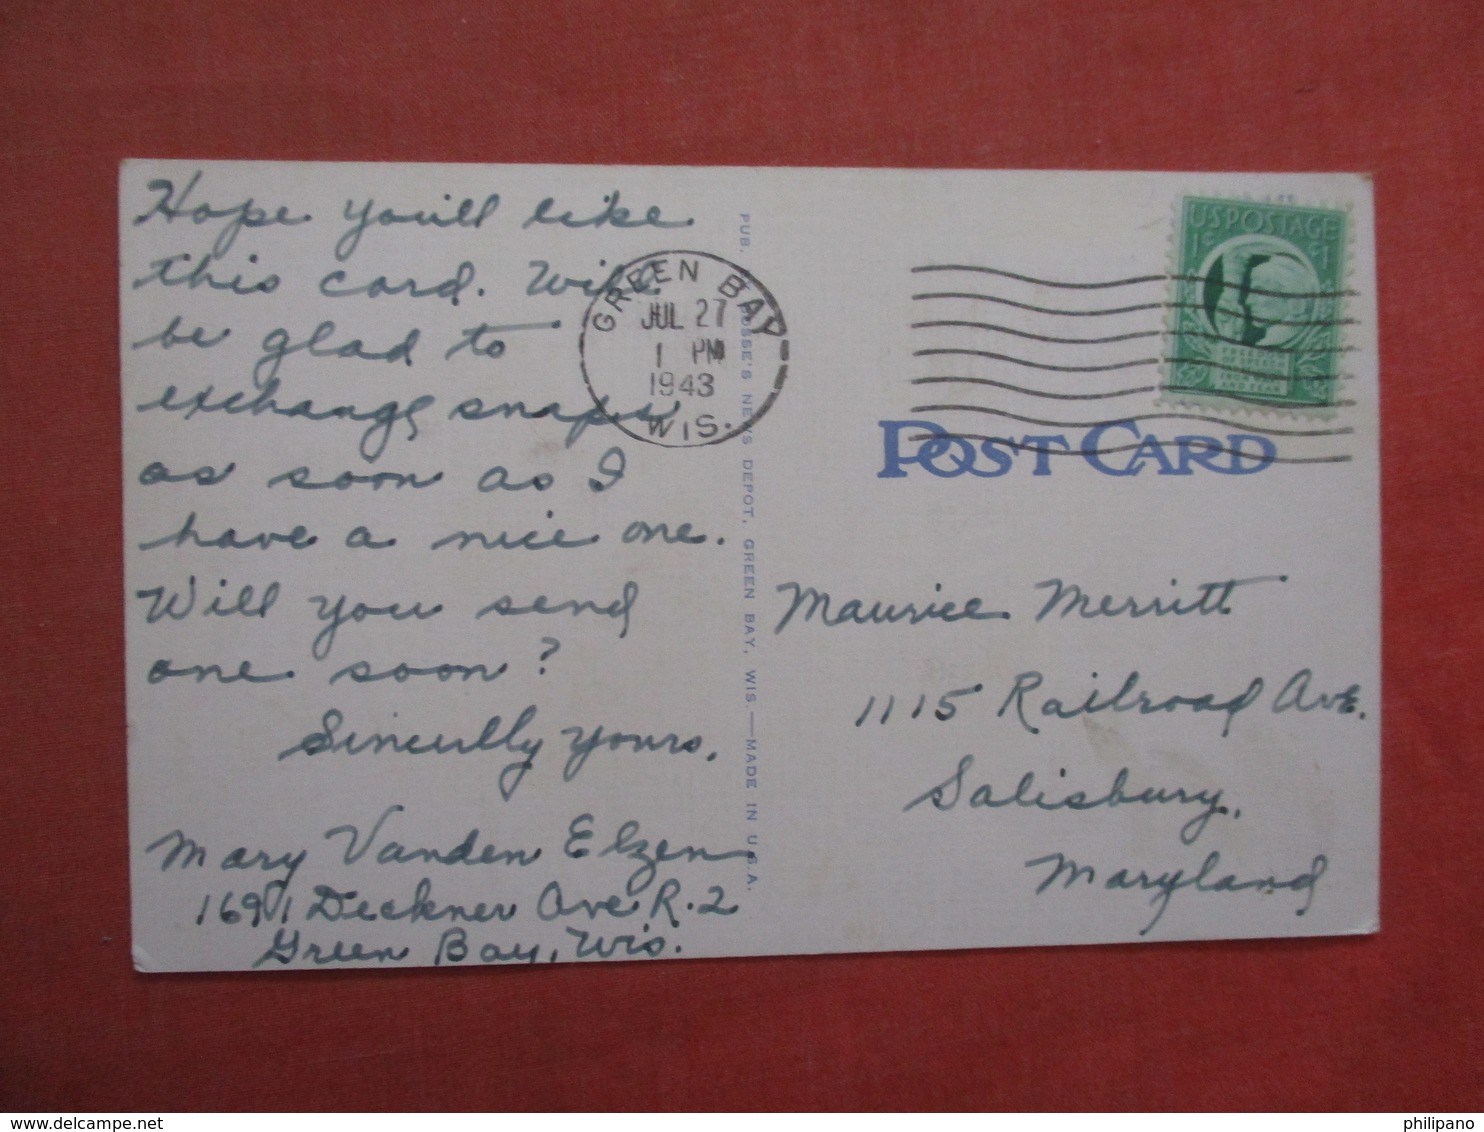 Hope you'll like
this card. Will
be glad to
exchange snaps
as soon as I
have a nice one.
Will you send
one soon?
Sincerely yours,
Mary Vanden Elzen
1691 Deckner Ave R.2
Green Bay, Wis.
GREEN BAY
JUL 27
1 PM
1943
WIS.
NEWS DEPOT, GREEN BAY, WIS.—MADE IN U.S.A.
U.S. POSTAGE
1¢ 1¢
POST CARD
Maurice Merritt
1115 Railroad Ave.
Salisbury,
Maryland
www.delcampe.net
philipano